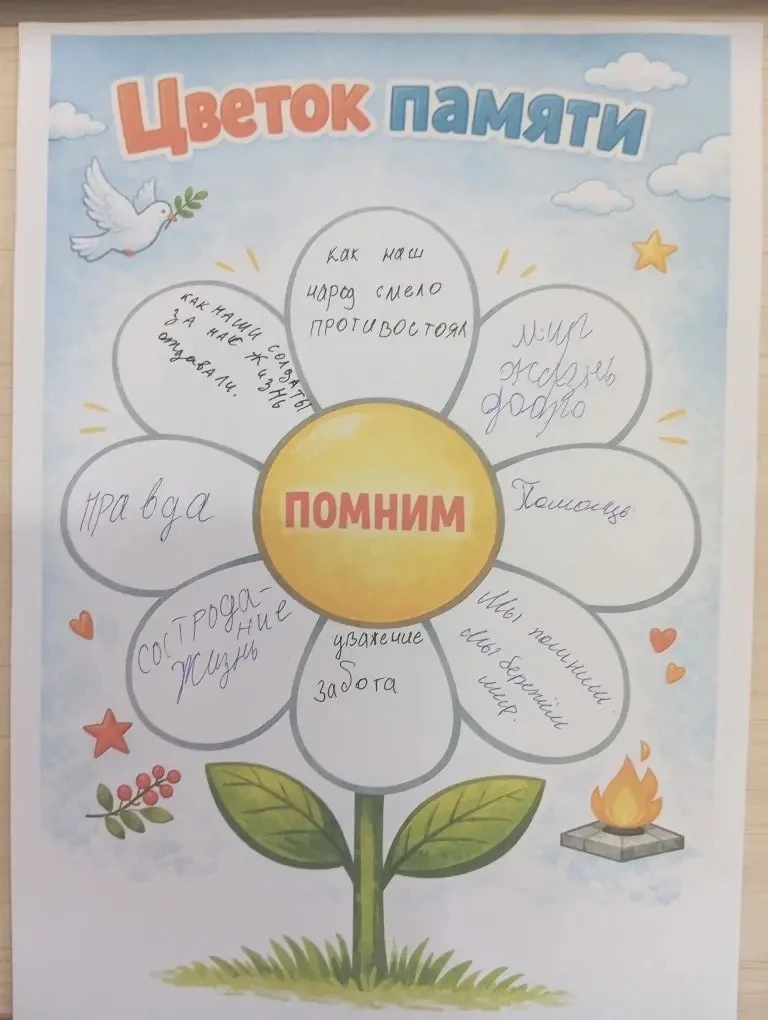 Цветок памяти
как наш
народ смело
противостоял
как наши солдаты
за нас жизнь
отдавали.
мир
жизнь
добро
правда
ПОМНИМ
Помощь
сострода-
ние
жизнь
уважение
забота
Мы помним.
Мы бережём
мир.